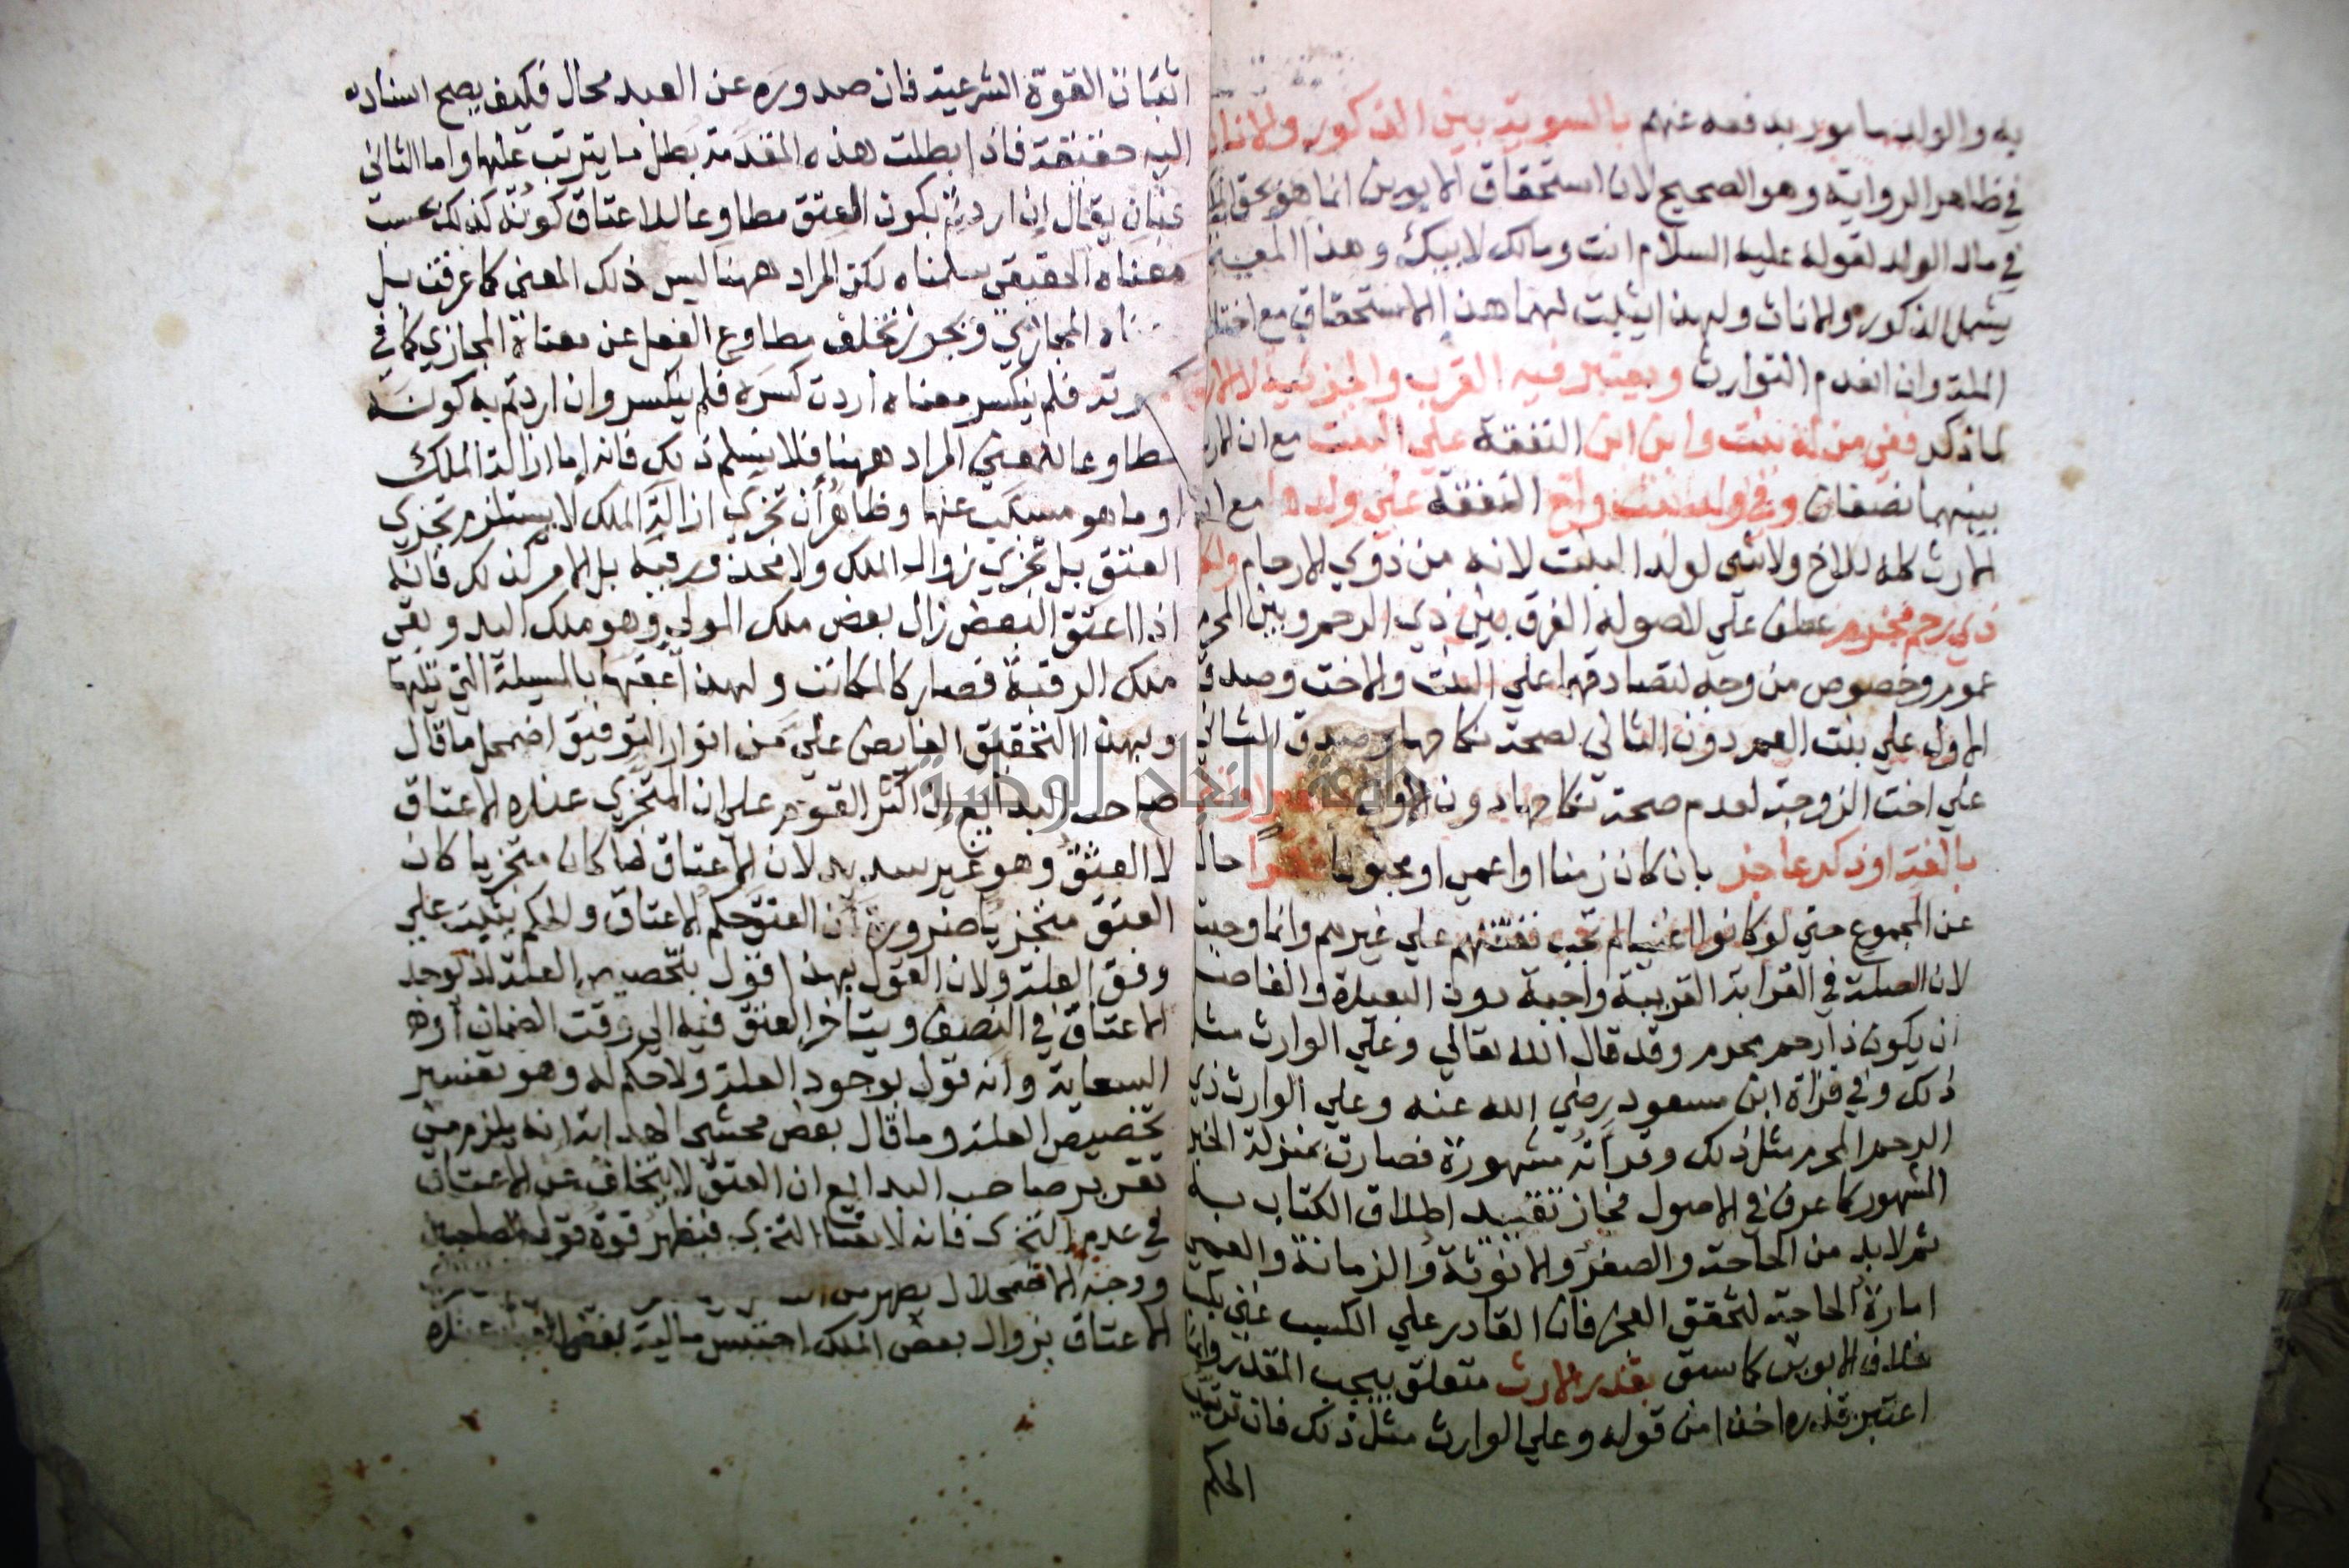 به والولد مامور بدفعه عنهم بالسوية بين الذكور والاناث
في ظاهر الرواية وهو الصحيح لان استحقاق الابوين انما هو بحق
في مال الولد لقوله عليه السلام انت ومالك لابيك وهذا المعني
يشمل الذكور والاناث ولهذا يثبت لهما هذا الاستحقاق مع اختلاف
الملة وان انعدم التوارث ويعتبر فيه القرب والجزئية لا الارث
لما ذكر ففي من له بنت وابن ابن النفقة علي البنت مع ان الارث
بينهما نصفان وفي ولد بنت واخ النفقة علي ولدها مع ان
الارث كله للاخ ولا شي لولد البنت لانه من ذوي الارحام ولكل
ذي رحم محرم عطف علي لاصوله الفرق بين ذي الرحم وبين المحرم
عموم وخصوص من وجه لتصادقهما علي البنت والاخت وصدق
الاول علي بنت العم دون الثاني لصحة نكاحها وصدق الثاني
علي اخت الزوجة لعدم صحة نكاحها دون الاول
بالغة او ذكر عاجز بان كان زمنا او اعمي او مجنونا فقيرا حال
عن المجموع حتي لو كانوا اغنياء لم تجب نفقتهم علي غيرهم وانما وجبت
لان الصلة في القرابة القريبة واجبة دون البعيدة والفاصل
ان يكون ذا رحم محرم وقد قال الله تعالي وعلي الوارث مثل
ذلك وفي قراة ابن مسعود رضي الله عنه وعلي الوارث ذي
الرحم المحرم مثل ذلك وقراته مشهورة فصارت بمنزلة الخبر
المشهور كما عرف في الاصول فجاز تقييد اطلاق الكتاب به
ثم لابد من الحاجة والصغر والانوثة والزمانة والعمي
امارة الحاجة لتحقق العجز فان القادر علي الكسب غني بكسبه
بخلاف الابوين كما سبق بقدر الارث متعلق بيجب المقدر وانما
اعتبر قدره اخذا من قوله وعلي الوارث مثل ذلك فان ترتيب
الحكم
اثبات القوة الشرعية فان صدوره عن العبد محال فكيف يصح اسناده
اليه حقيقة فاذا بطلت هذه المقدمة بطل ما يترتب عليها واما الثاني
فبان يقال ان اردتم بكون العتق مطاوعا للاعتاق كونه كذلك بحسب
معناه الحقيقي سلمناه لكن المراد ههنا ليس ذلك المعني كما عرفت بل
معناه المجازي ويجوز تخلف مطاوع الفعل عن معناه المجازي كما في
كسرته فلم ينكسر معناه اردت كسره فلم ينكسر وان اردتم به كونه
مطاوعا لمعني المراد ههنا فلا نسلم ذلك فانه اما ازالة الملك
او ما هو مسبب عنها وظاهر ان تجزي ازالة الملك لا يستلزم تجزي
العتق بل تجزي زوال الملك ولا محذور فيه بل الامر كذلك فانه
اذا اعتق البعض زال بعض ملك المولي وهو ملك اليد وبقي
ملك الرقبة فصار كالمكاتب ولهذا اعقبها بالمسيلة التي تليها
وبهذا التحقيق الفايض علي من انوار التوفيق اضمحل ما قال
صاحب البدايع ان اكثر القوم علي ان المتجزي عنده الاعتاق
لا العتق وهو غير سديد لان الاعتاق لما كان متجزيا كان
العتق متجزيا ضرورة ان العتق حكم الاعتاق والحكم يثبت علي
وفق العلة ولان القول بهذا قول بتخصيص العلة اذ يوجد
الاعتاق في النصف ويتاخر العتق فيه الي وقت الضمان او
السعاية وانه قول بوجود العلة ولا حكم له وهو تفسير
تخصيص العلة وما قال بعض محشي الهداية انه يلزم من
تقرير صاحب البدايع ان العتق لا يتخلف عن الاعتاق
في عدم التجزي فانه لا يقبل التجزي فيظهر قوة قول الصاحبين
ووجه الاضمحلال يظهر من
الاعتاق بزوال بعض الملك احتبس مالية بعض العبد عنده